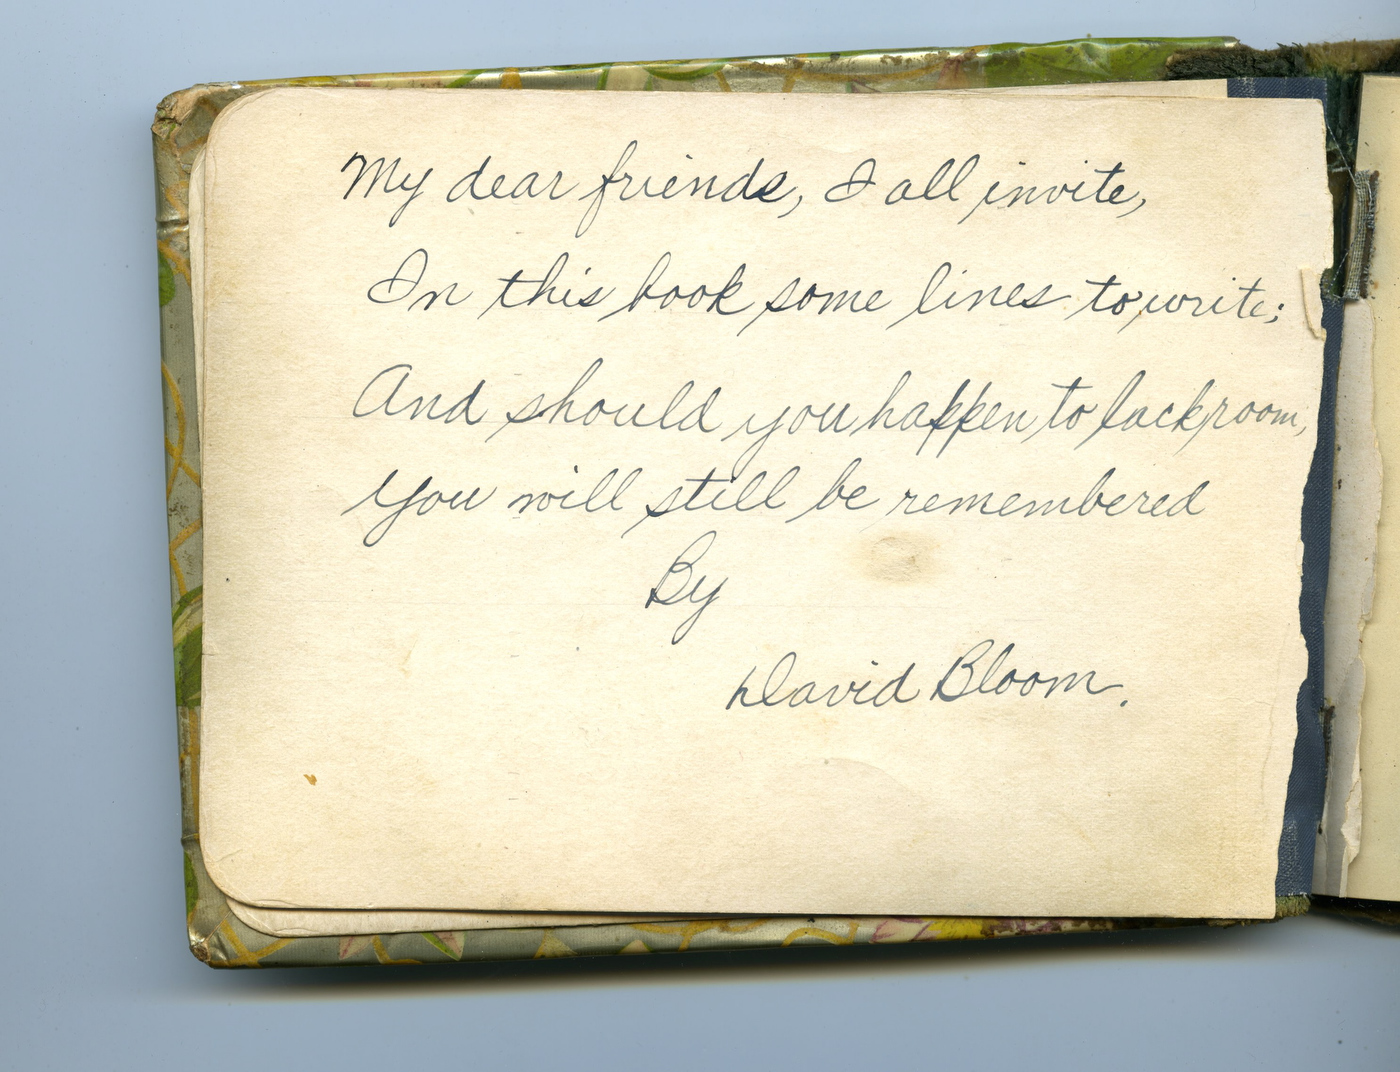 My dear friends, I all invite,
In this book some lines to write;
And should you happen to lack room,
You will still be remembered
By
David Bloom.